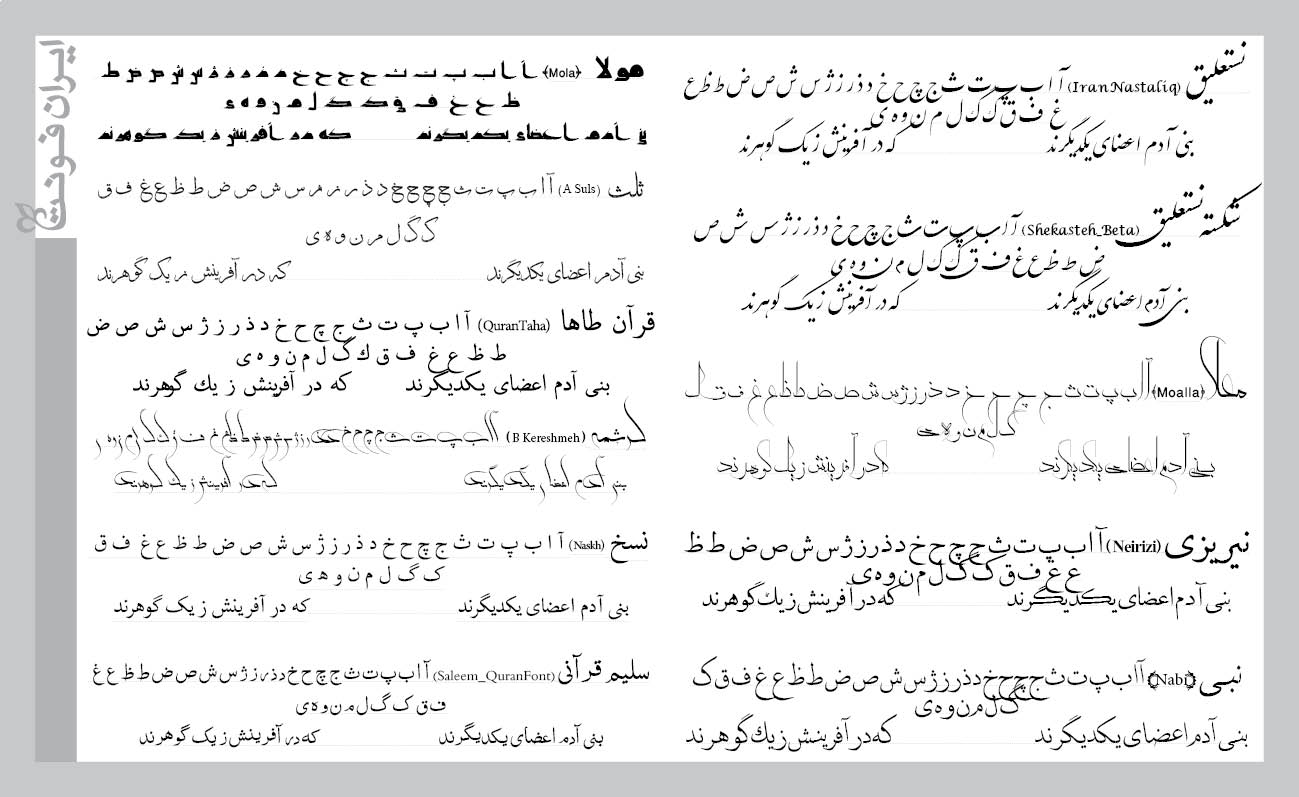 نستعلیق (IranNastaliq) آ ا ب پ ت ث ج چ ح خ د ذ ر ز ژ س ش ص ض ط ظ ع
غ ف ق ک گ ل م ن و ه ی
بنی آدم اعضای یکدیگرند که در آفرینش ز یک گوهرند
شکسته نستعلیق (Shekasteh_Beta) آ ا ب پ ت ث ج چ ح خ د ذ ر ز ژ س ش ص
ض ط ظ ع غ ف ق ک گ ل م ن و ه ی
بنی آدم اعضای یکدیگرند که در آفرینش ز یک گوهرند
معلا (Moalla) آ ا ب پ ت ث ج چ ح خ د ذ ر ز ژ س ش ص ض ط ظ ع غ ف ق ک
گ ل م ن و ه ی
بنی آدم اعضای یکدیگرند که در آفرینش ز یک گوهرند
نیریزی (Neirizi) آ ا ب پ ت ث ج چ ح خ د ذ ر ز ژ س ش ص ض ط ظ
ع غ ف ق ک گ ل م ن و ه ی
بنی آدم اعضای یکدیگرند که در آفرینش ز یك گوهرند
نبی (Nabi) آ ا ب پ ت ث ج چ ح خ د ذ ر ز ژ س ش ص ض ط ظ ع غ ف ق ک
گ ل م ن و ه ی
بنی آدم اعضای یکدیگرند که در آفرینش ز یك گوهرند
مولا (Mola) آ ا ب پ ت ث ج چ ح خ د ذ ر ز ژ س ش ص ض ط
ظ ع غ ف ق ک گ ل م ن و ه ی
بنی آدم اعضای یکدیگرند که در آفرینش ز یک گوهرند
ثلث (A Suls) آ ا ب پ ت ث ج چ ح خ د ذ ر ز ژ س ش ص ض ط ظ ع غ ف ق
ک گ ل م ن و ه ی
بنی آدم اعضای یکدیگرند که در آفرینش ز یک گوهرند
قرآن طاها (QuranTaha) آ ا ب پ ت ث ج چ ح خ د ذ ر ز ژ س ش ص ض
ط ظ ع غ ف ق ك گ ل م ن و ه ی
بنی آدم اعضای یکدیگرند که در آفرینش ز یك گوهرند
کرشمه (B Kereshmeh) آ ا ب پ ت ث ج چ ح خ د ذ ر ز ژ س ش ص ض ط ظ ع غ ف ق ک گ ل م ن و ه ی
بنی آدم اعضای یکدیگرند که در آفرینش ز یک گوهرند
نسخ (Naskh) آ ا ب پ ت ث ج چ ح خ د ذ ر ز ژ س ش ص ض ط ظ ع غ ف ق
ک گ ل م ن و ه ی
بنی آدم اعضای یکدیگرند که در آفرینش ز یک گوهرند
سلیم قرآنی (Saleem_QuranFont) آ ا ب پ ت ث ج چ ح خ د ذ ر ز ژ س ش ص ض ط ظ ع غ
ف ق ک گ ل م ن و ه ی
بنی آدم اعضای یکدیگرند که در آفرینش ز یک گوهرند
ایران فونت